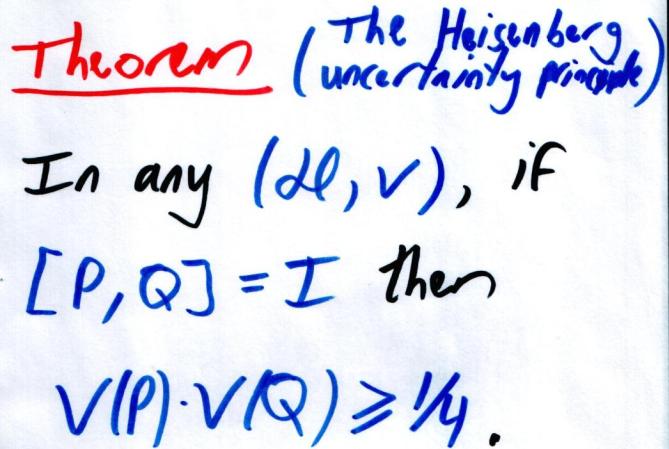 Theorem (The Heisenberg uncertainty principle)
In any (ℋ, v), if
[P, Q] = I then
V(P)·V(Q) ⩾ 1/4.